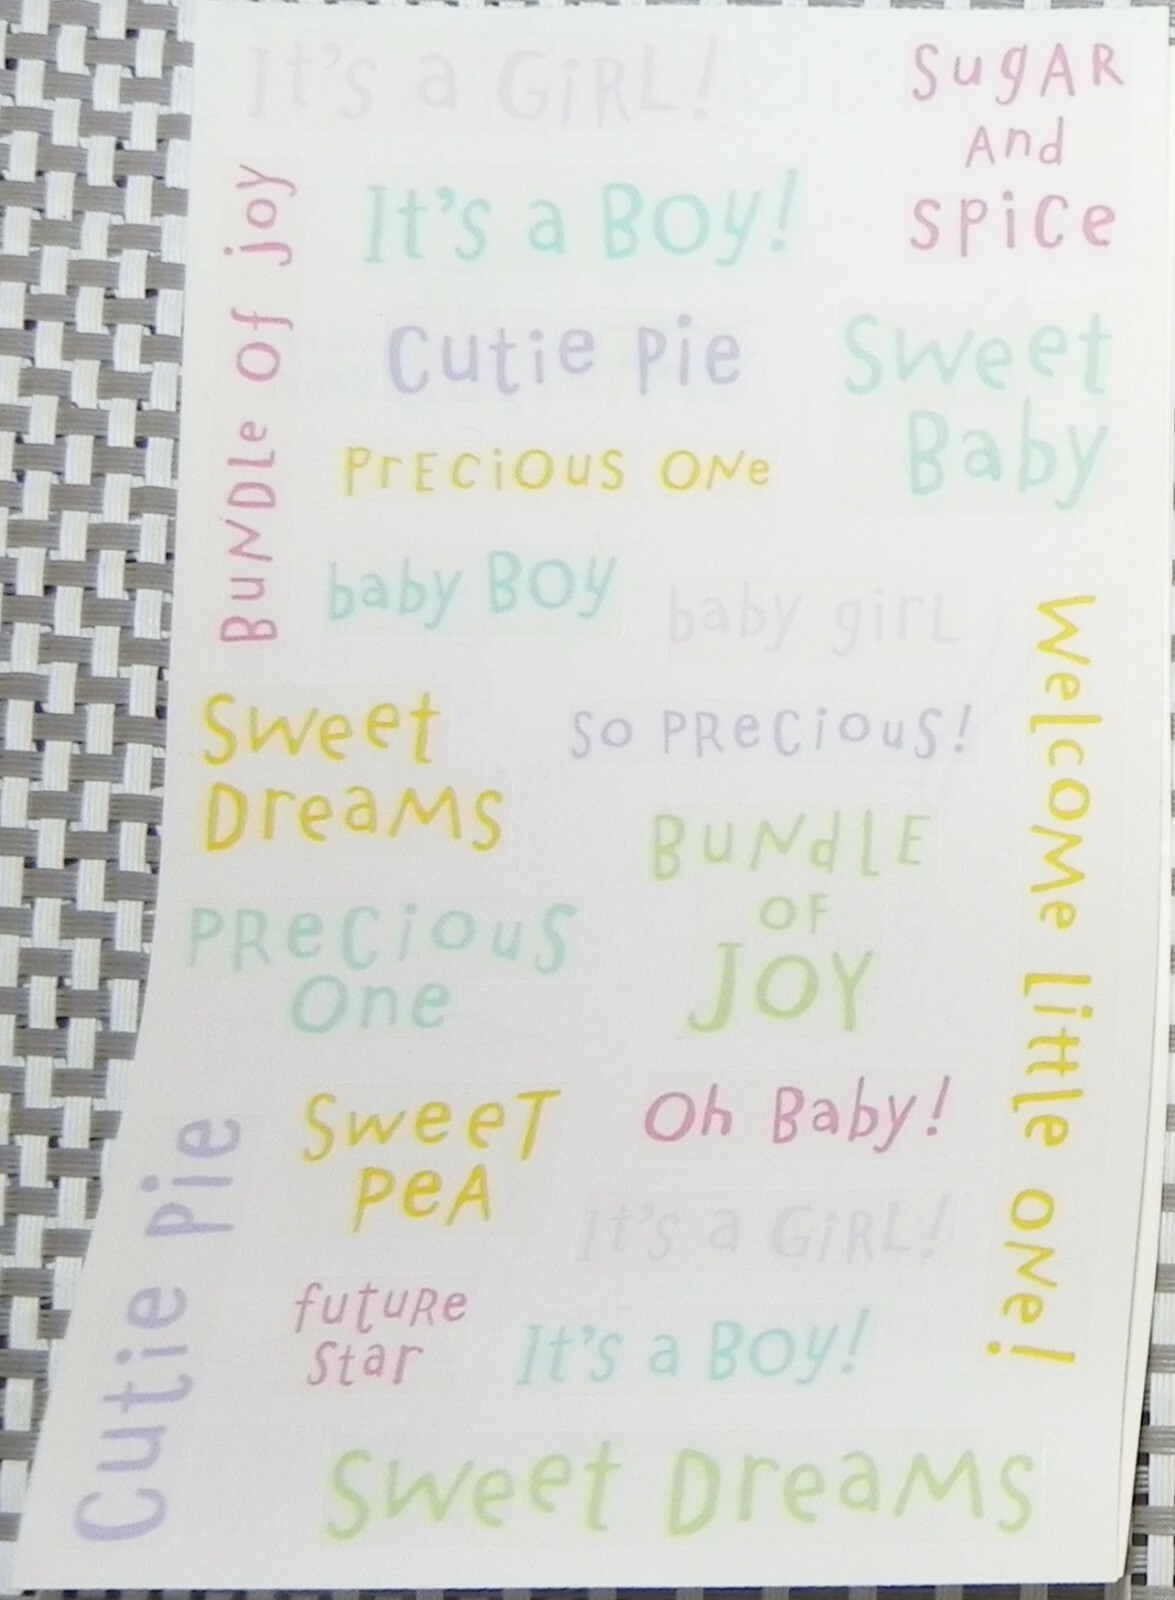 It's a GiRL!
SugAR
And
SPiCe
BuNDLe Of joy
It's a Boy!
Cutie Pie
Sweet
Baby
PrECiOuS ONe
baby BOy
baby girL
Welcome little one!
Sweet
DreaMS
SO PReCiouS!
BuNdLE
OF
JOY
PReCiouS
One
SweeT
PeA
Oh Baby!
It's a GiRL!
Cutie Pie
futuRe
Star
It's a Boy!
Sweet DreaMS